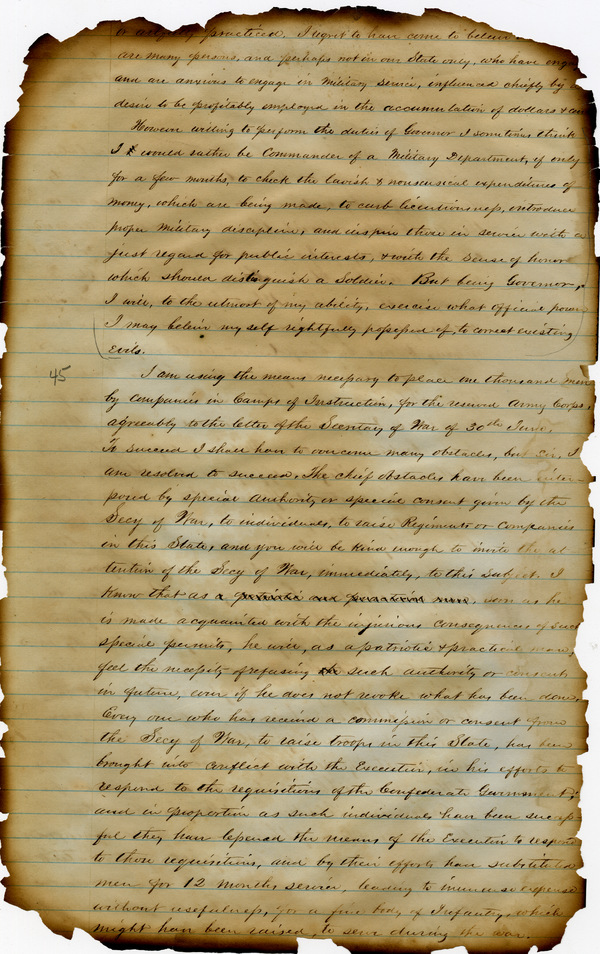 practiced. I regret to have come to believe
are many persons, and perhaps not in our State only, who have
and are anxious to engage in Military service, influenced chiefly by
desire to be profitably employed in the accumulation of dollars &
However willing to perform the duties of Governor I sometimes think
I would rather be Commander of a Military Department, if only
for a few months, to check the lavish & nonsensical expenditures of
money, which are being made, to curb licentiousness, introduce
proper military discipline, and inspire those in service with a
just regard for public interests, & with the sense of honor
which should distinguish a Soldier. But being Governor,
I will, to the utmost of my ability, exercise what official power
I may believe my self rightfully possessed of, to correct existing
evils.
45
I am using the means necessary to place one thousand men
by companies in Camps of Instruction, for the reserved Army Corps,
agreeably to the letter of the Secretary of War of 30th June.
To succeed I shall have to overcome many obstacles, but Sir, I
am resolved to succeed. The chief obstacles have been inter-
posed by special authority or special consent given by the
Secy of War, to individuals, to raise Regiments or Companies
in this State, and you will be kind enough to invite the at
tention of the Secy of War, immediately, to this subject. I
know that as a patriotic and practical man, soon as he
is made acquainted with the injurious consequences of such
special permits, he will, as a patriotic & practical man,
feel the necessity of refusing such authority or consents
in future, even if he does not revoke what has been done.
Every one who has received a commission or consent from
the Secy of War, to raise troops in this State, has been
brought into conflict with the Executive, in his efforts to
respond to the requisitions of the Confederate Government;
and in proportion as such individuals have been success
ful they have lessened the means of the Executive to respond
to those requisitions, and by their efforts have substituted
men for 12 months service, leading to immense expense
without usefulness, for a fine body of Infantry, which
might have been raised, to serve during the war.